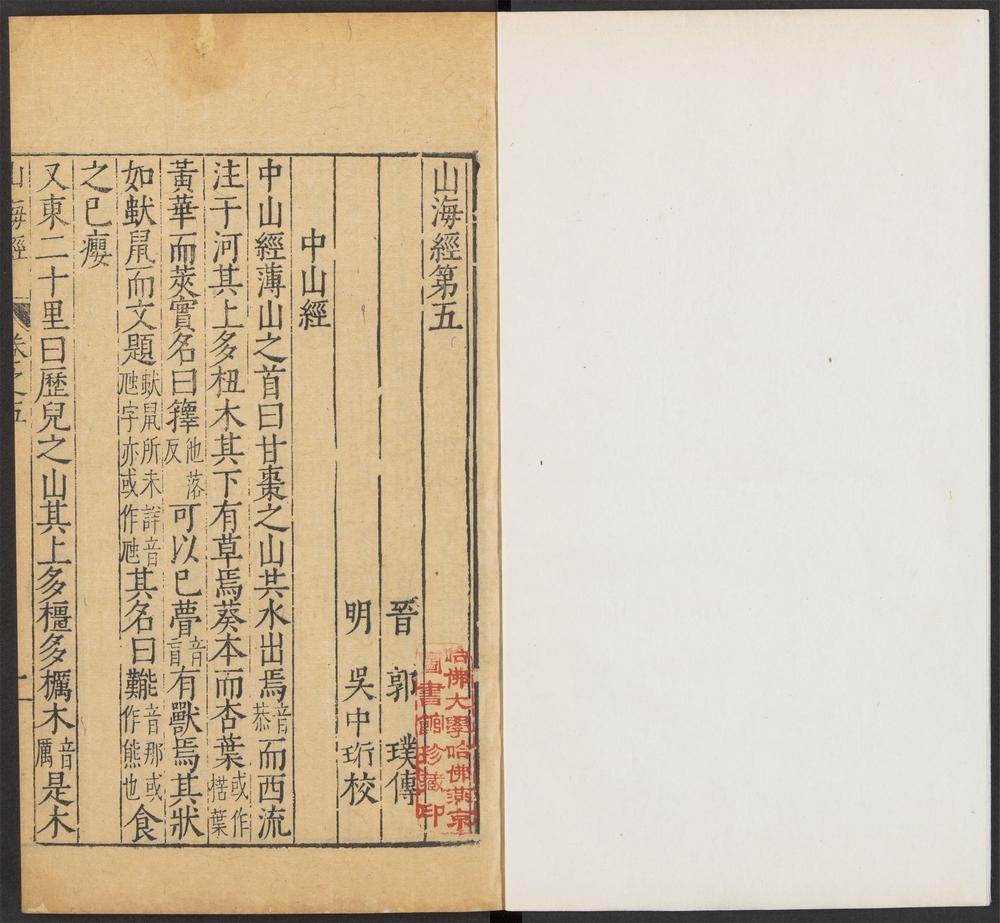 山海經第五
晉 郭 璞傳
明 吳中珩校
中山經
中山經薄山之首曰甘棗之山共水出焉音恭而西流
注于河其上多杻木其下有草焉葵本而杏葉或作楛葉
黃華而莢實名曰籜他落反可以已瞢音盲有獸焉其狀
如㹠鼠而文題㹠鼠所未詳音虺字亦或作虺其名曰㔮音那或作熊也食
之已癭
又東二十里曰歷兒之山其上多橿多櫔木音厲是木
山海經 卷之五 一
哈佛大學哈佛燕京
圖書館珍藏印